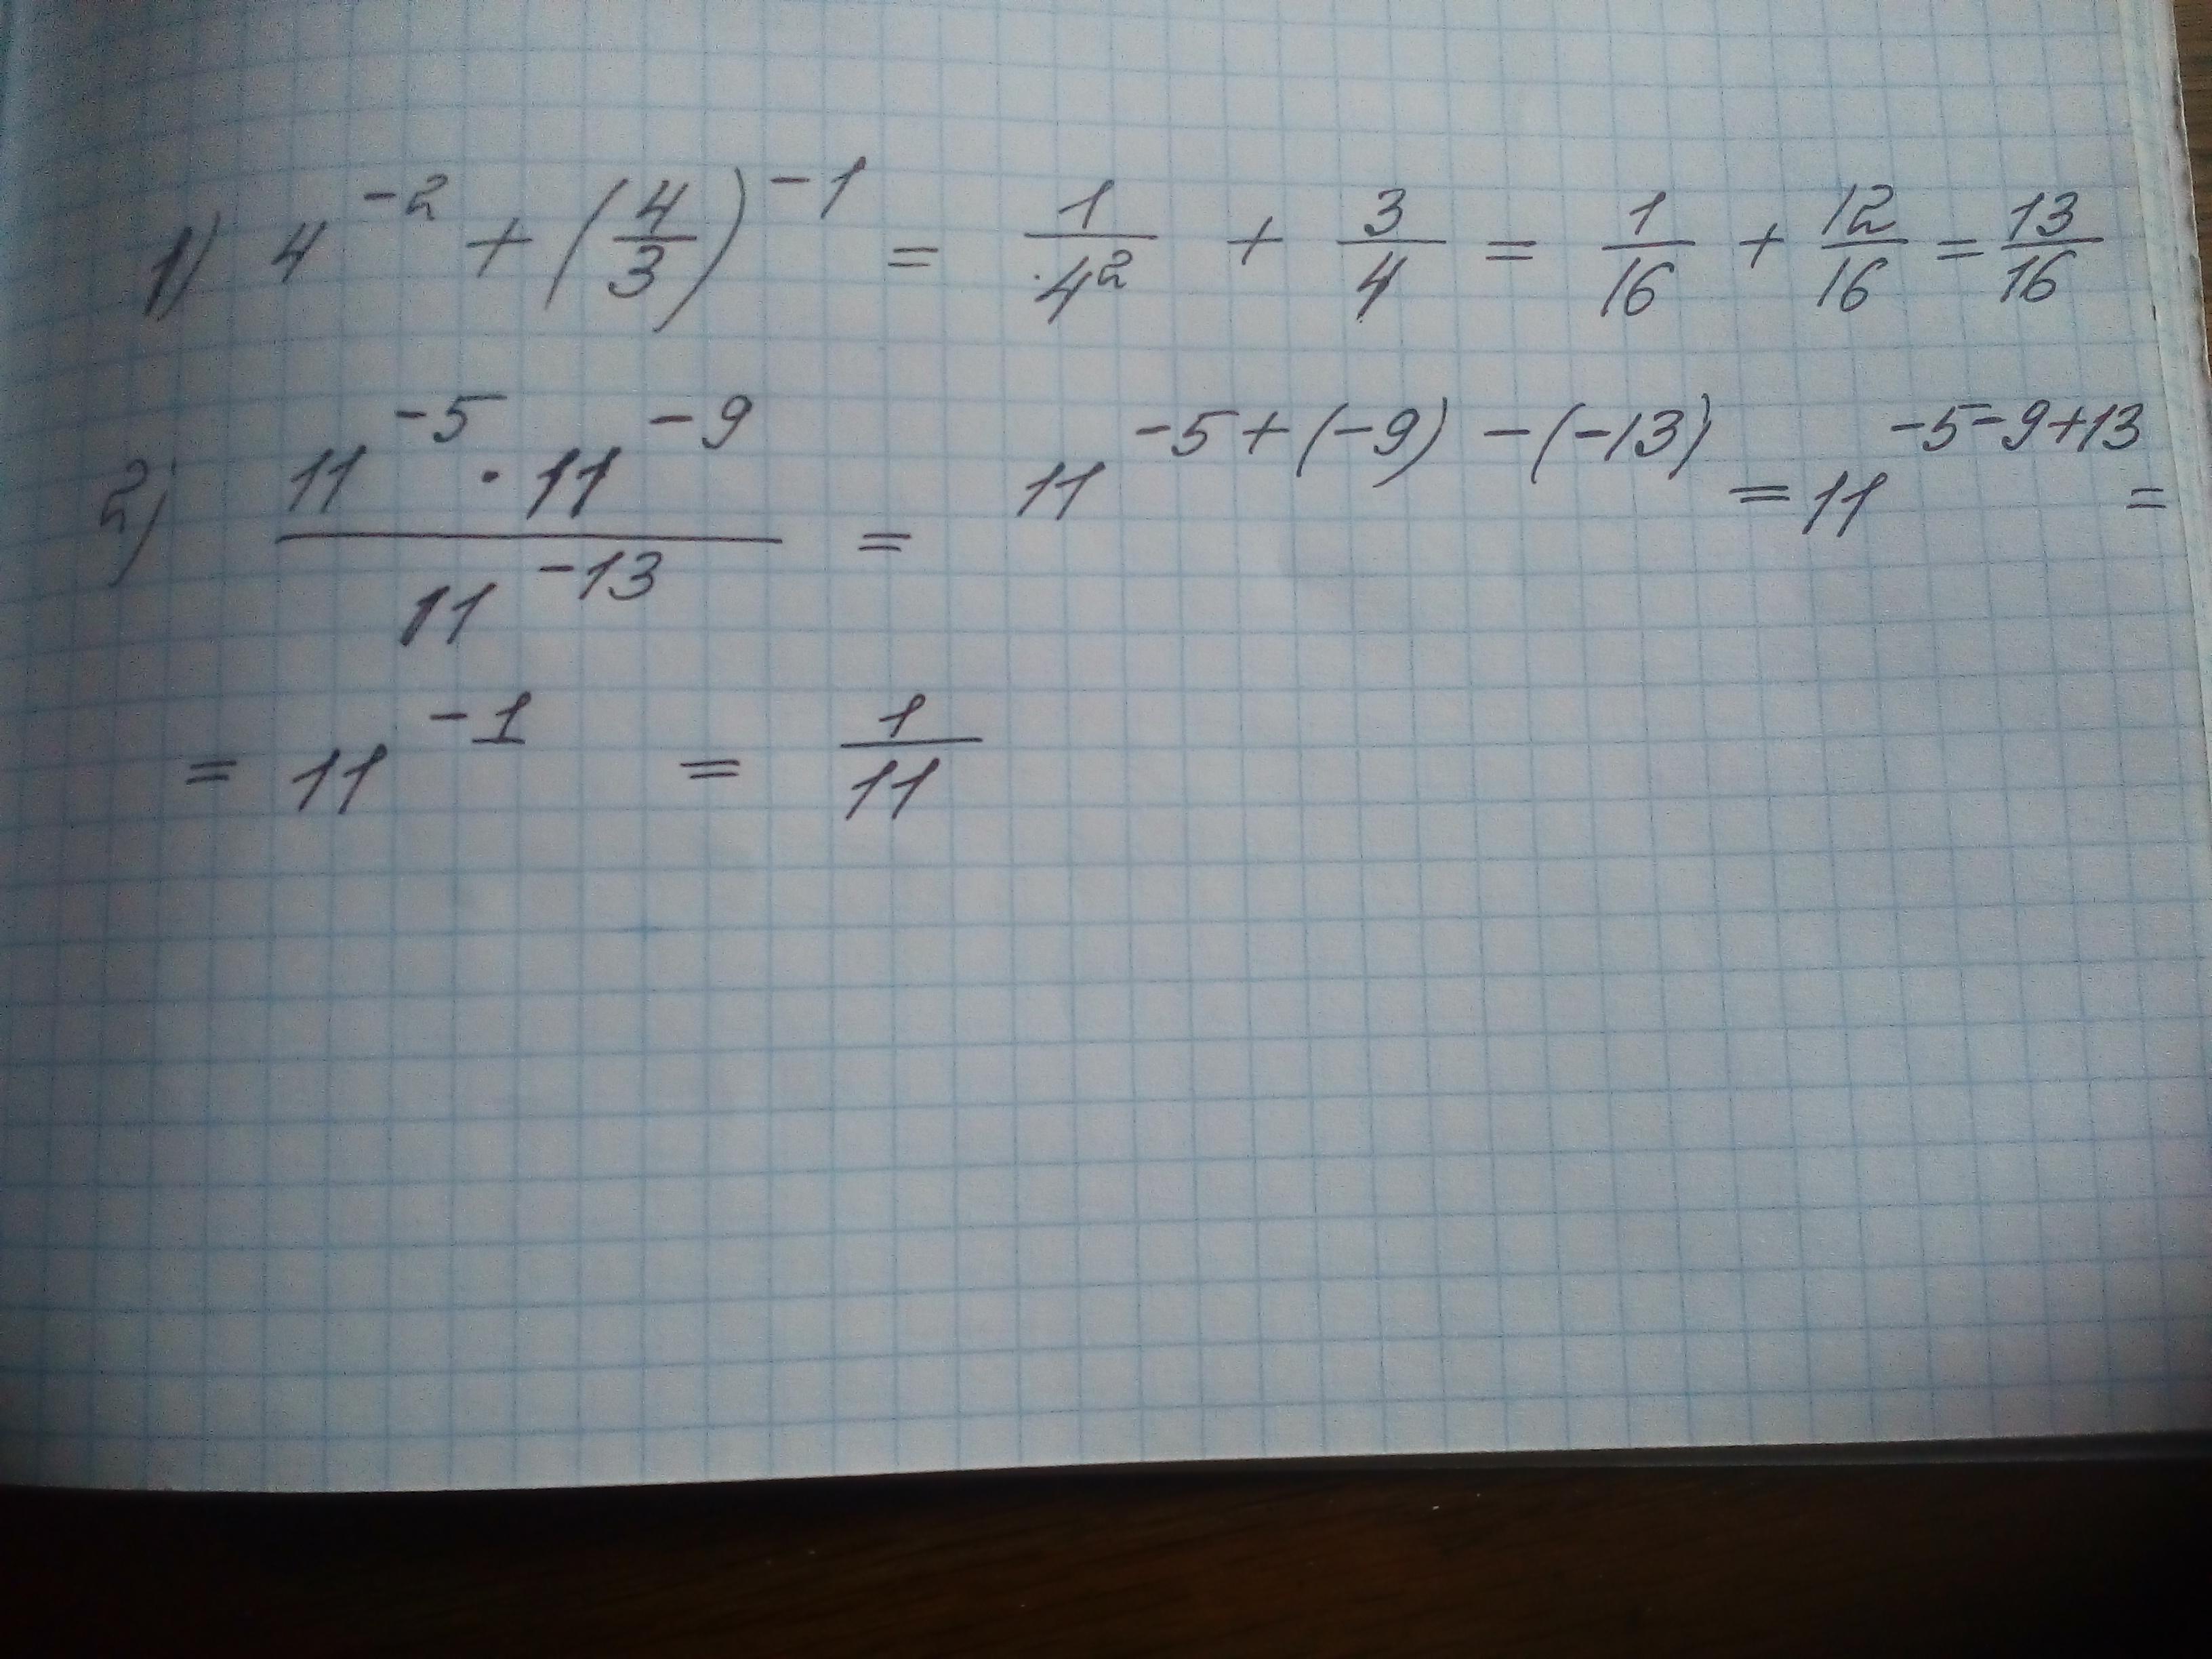 1) 4^{-2} + (4/3)^{-1} = 1/4^2 + 3/4 = 1/16 + 12/16 = 13/16
2) (11^{-5} · 11^{-9})/11^{-13} = 11^{-5+(-9)-(-13)} = 11^{-5-9+13} =
= 11^{-1} = 1/11